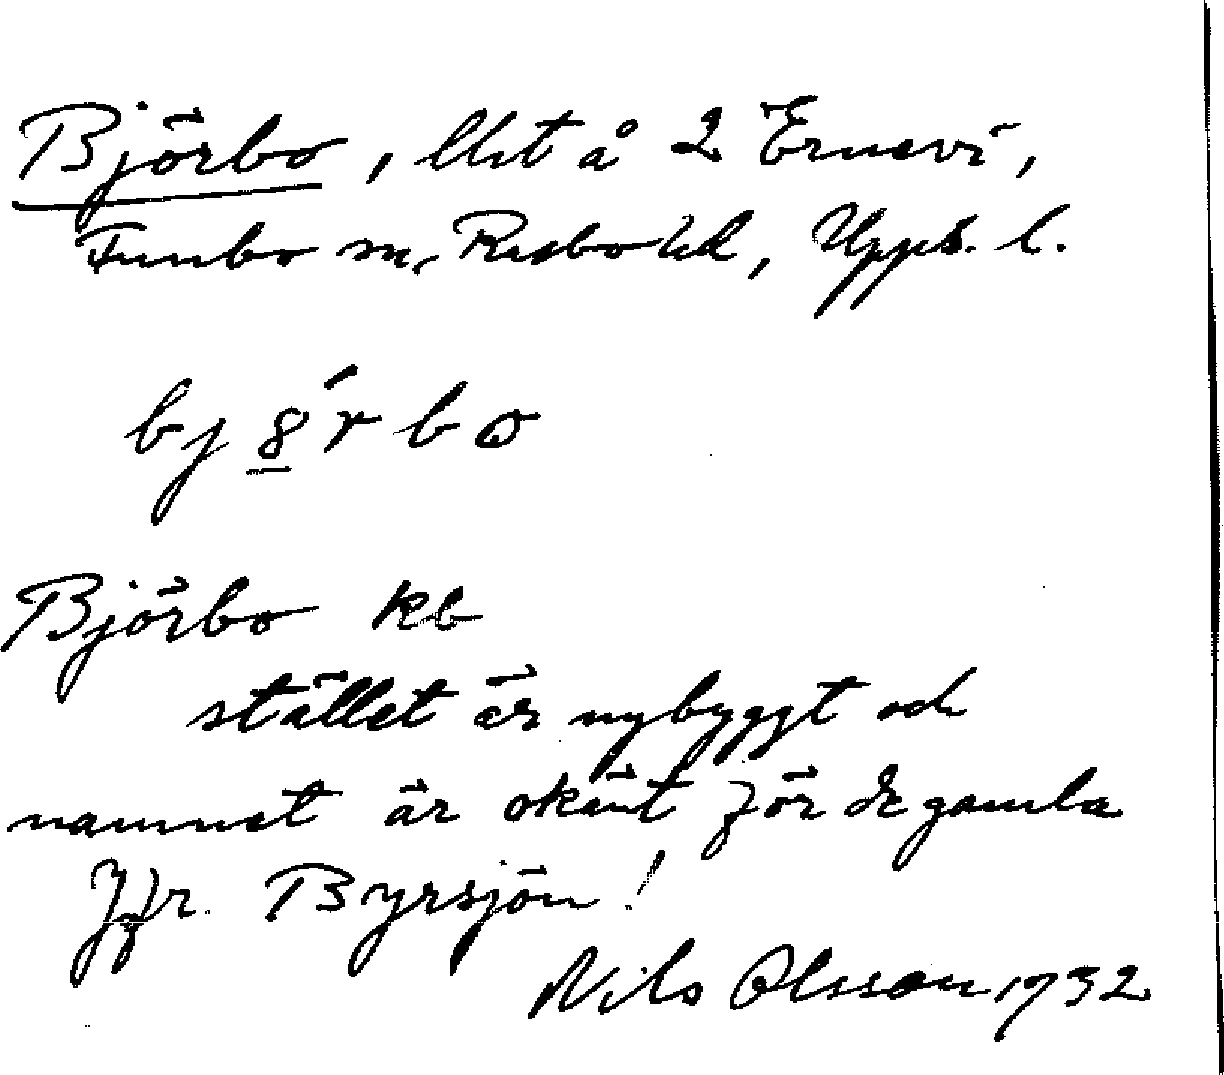 Björbo, lht å 2 Ernevi,
Funbo sn, Rasbo hd, Upps. l.
bj8́rbo
Björbo kb
stället är nybyggt och
namnet är okänt för de gamla
Jfr. Byrsjön!
Nils Olsson 1932